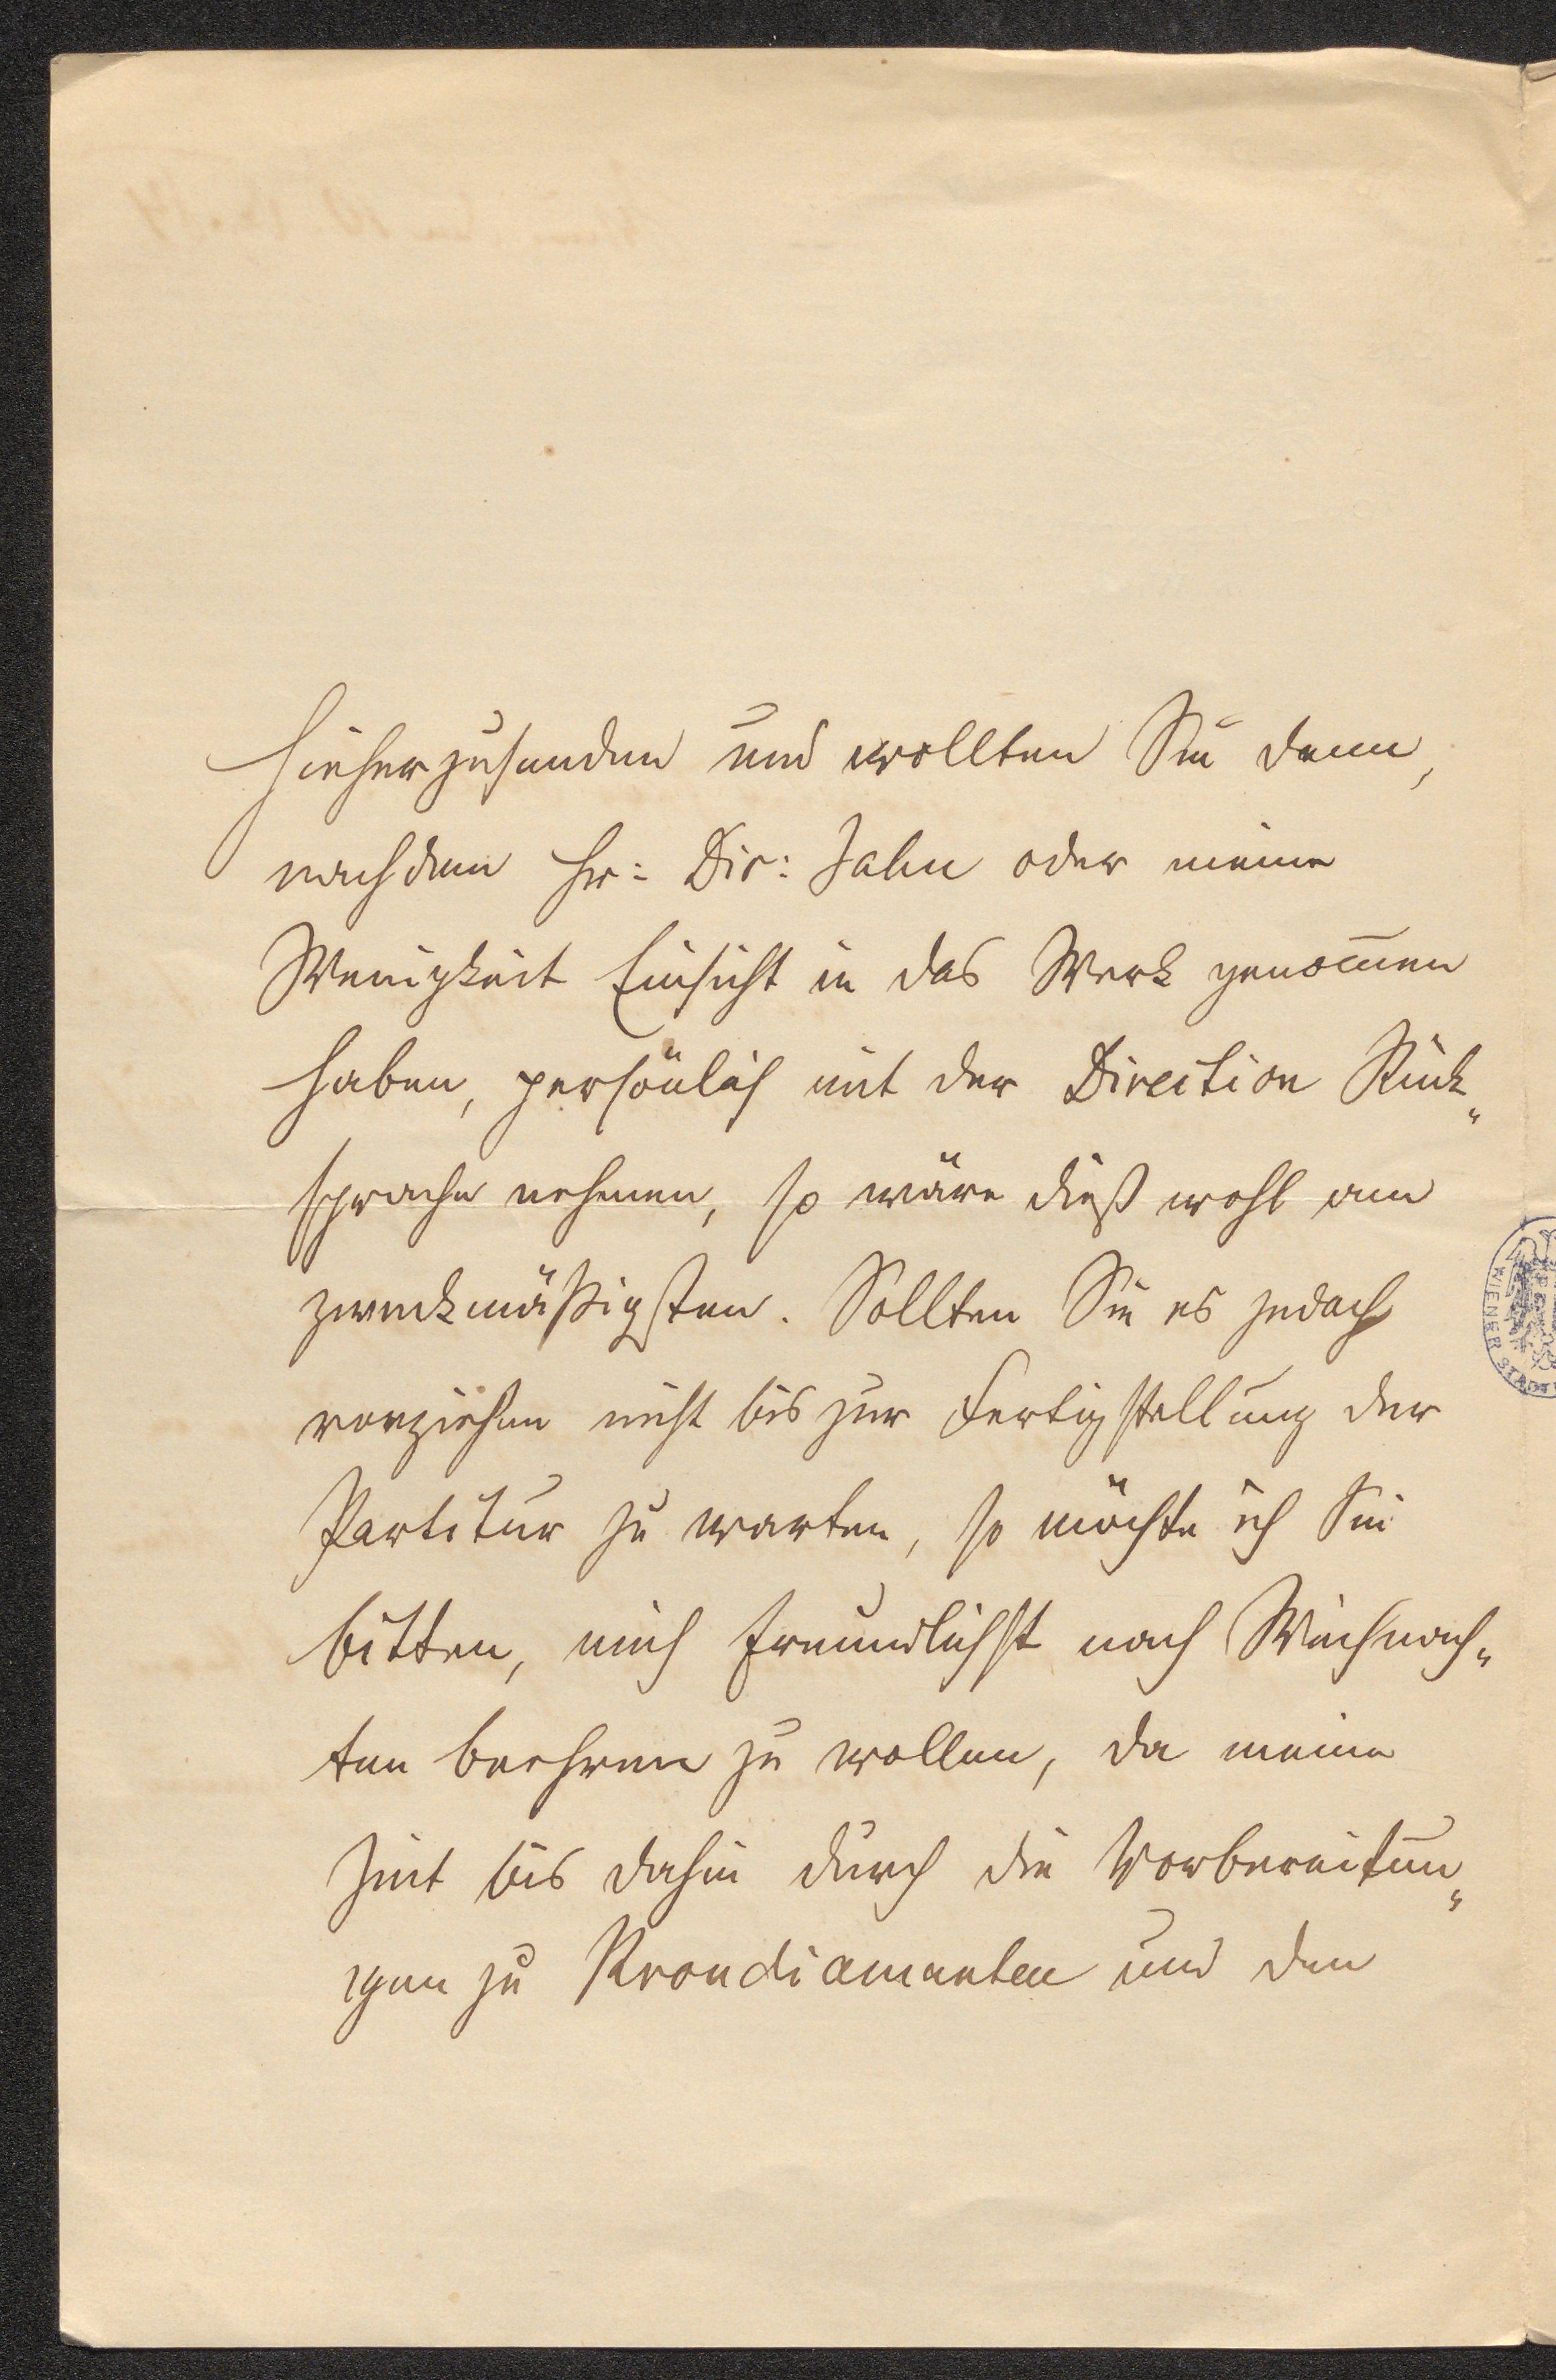 hieherzusenden und wollten Sie dann,
nachdem Hr: Dir: Jahn oder meine
Wenigkeit Einsicht in das Werk genom̄en
haben, persönlich mit der Direction Rück„
sprache nehmen, so wäre dieß wohl am
zweckmäßigsten. Sollten Sie es jedoch
vorziehen nicht bis zur Fertigstellung der
Partitur zu warten, so möchte ich Sie
bitten, mich freundlichst nach Weihnach„
ten beehren zu wollen, da meine
Zeit bis dahin durch die Vorbereitun„
gen zu Krondiamanten und den
WIENER STADT